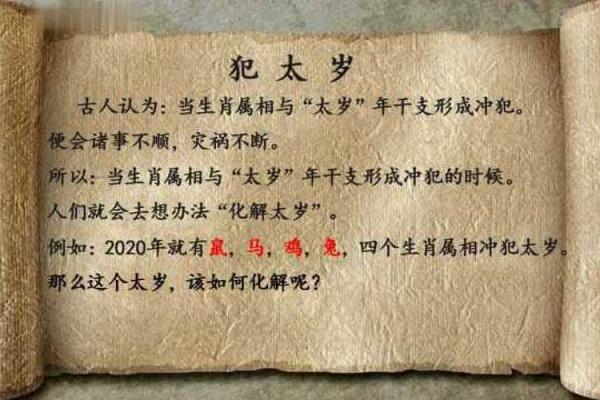 犯太岁
古人认为：当生肖属相与“太岁”年干支形成冲犯。
便会诸事不顺，灾祸不断。
所以：当生肖属相与“太岁”年干支形成冲犯的时候。
人们就会去想办法“化解太岁”。
例如：2020年就有鼠，马，鸡，兔，四个生肖属相冲犯太岁。
那么这个太岁，该如何化解呢？